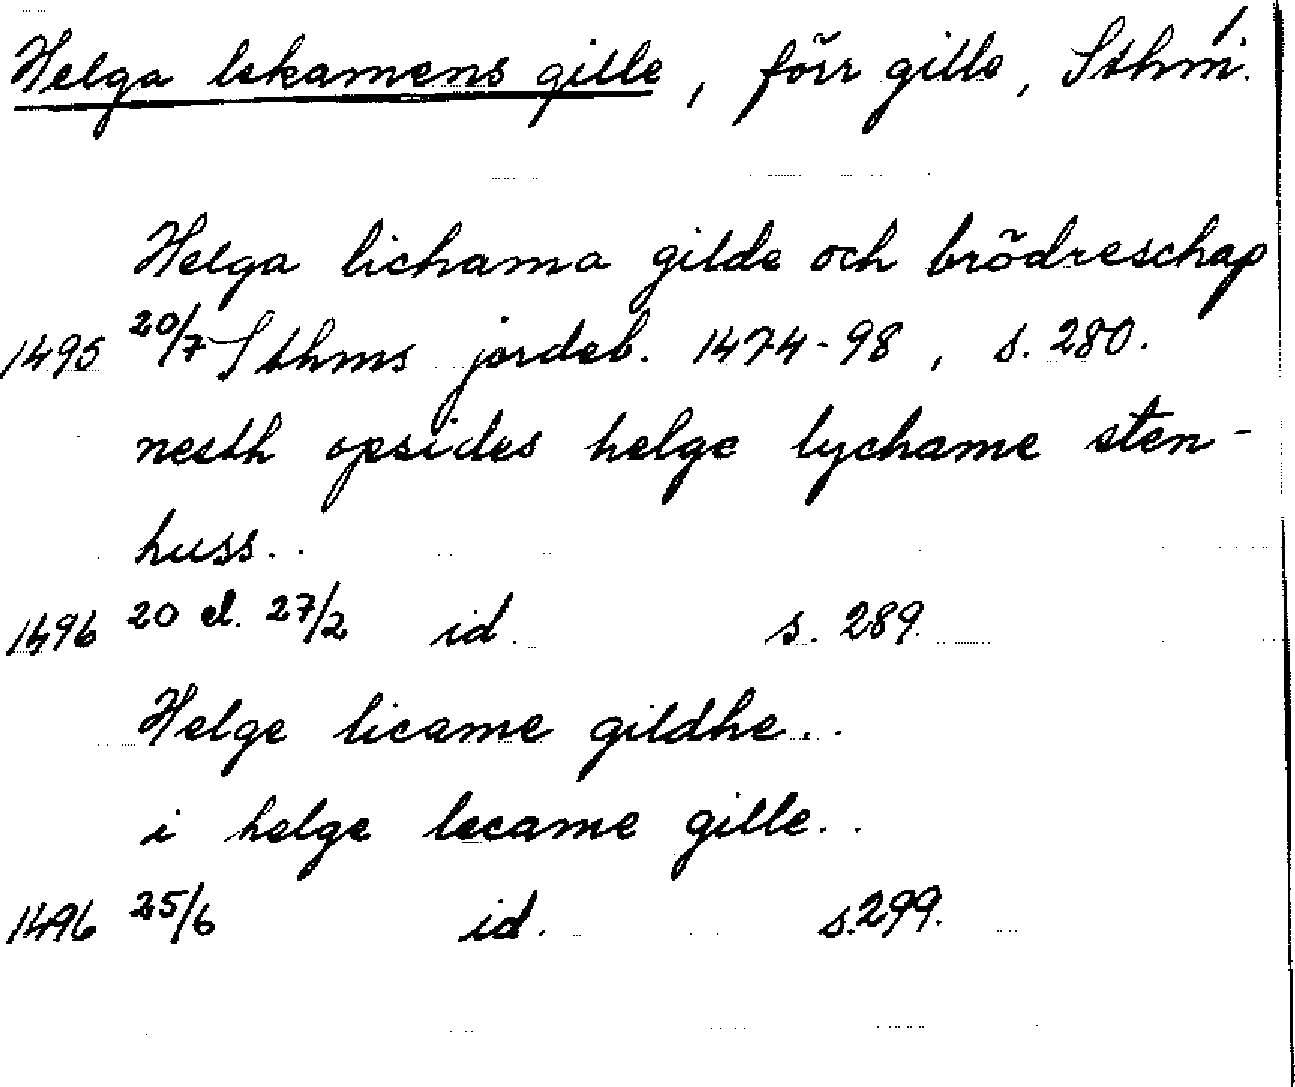 Helga lekamens gille, förr gille, Sthm. 1.
Helga lichama gilde och brödreschap
1495 20/7 Sthms jordeb. 1474-98, s. 280.
nesth opsides helge lychame sten-
huss..
1496 20 el. 27/2 id. s. 289.
Helge licame gildhe...
i helge lecame gille..
1496 25/6 id. s. 299.